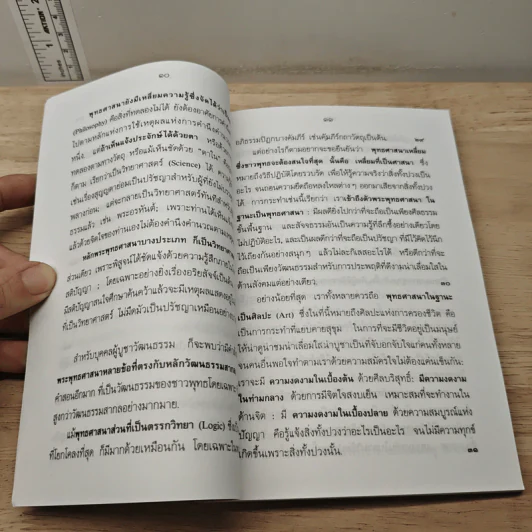 ๑๐
พุทธศาสนายังมีเหลี่ยมความรู้ซึ่งจัดได้
(Philosophy) คือสิ่งที่ทดลองไม่ได้ ยังต้องอาศัยการ
ไปตามหลักแห่งการใช้เหตุผลแห่งการคำนึงคำ
หนึ่ง, แต่ถ้าเห็นแจ้งประจักษ์ได้ด้วยตา หรือ
ทดลองทางวัตถุ หรือแม้เห็นด้วย "ตาใน" คือ
ก็ตาม เรียกว่าเป็นวิทยาศาสตร์ (Science) ได้ ความ
เช่นเรื่องสุญญตาย่อมเป็นปรัชญาสำหรับผู้ที่ยังไม่
พลางก่อน; แต่จะกลายเป็นวิทยาศาสตร์ทันทีสำ
ธรรมแล้ว เช่น พระอรหันต์; เพราะท่านได้เห็น
แล้วด้วยจิตใจของท่านเองไม่ต้องคำนึงคำนวณตาม
หลักพระพุทธศาสนาบางประเภท ก็เป็นวิทยา
ส่วนเดียว เพราะพิสูจน์ได้ชัดแจ้งด้วยความรู้สึกภายใน
สติปัญญา : โดยเฉพาะอย่างยิ่งเรื่องอริยสัจจ์เป็นต้น
มีสติปัญญาสนใจศึกษาค้นคว้าแล้วจะมีเหตุผลแสดงอยู่
ที่เป็นวิทยาศาสตร์ ไม่มืดมัวเป็นปรัชญาเหมือนอย่าง
สำหรับบุคคลผู้บูชาวัฒนธรรม ก็จะพบว่ามี
พระพุทธศาสนาหลายข้อที่ตรงกับหลักวัฒนธรรมสากล
คำสอนอีกมาก ที่เป็นวัฒนธรรมของชาวพุทธโดยเฉพาะ
สูงกว่าวัฒนธรรมสากลอย่างมากมาย.
แม้พุทธศาสนาส่วนที่เป็นตรรกวิทยา (Logic) ซึ่ง
ที่โยกโคลงที่สุด ก็มีมากด้วยเหมือนกัน โดยเฉพาะใน
๑๑
อภิธรรมปิฎกบางคัมภีร์ เช่นคัมภีร์กถาวัตถุเป็นต้น.
๒๙
แต่อย่างไรก็ตามอยากจะขอยืนยันว่า พุทธศาสนาเหลี่ยม
ซึ่งชาวพุทธจะต้องสนใจที่สุด นั้นคือ เหลี่ยมที่เป็นศาสนา ซึ่ง
หมายถึงวิธีปฏิบัติโดยรวบรัด เพื่อให้รู้ความจริงว่าสิ่งทั้งปวงเป็น
อะไร จนถอนความยึดถือหลงใหลต่างๆ ออกมาเสียจากสิ่งทั้งปวง
ได้ การกระทำเช่นนี้เรียกว่า เราเข้าถึงตัวพระพุทธศาสนา ใน
ฐานะเป็นพุทธศาสนา : มีผลดียิ่งไปกว่าที่จะถือเป็นเพียงศีลธรรม
ขั้นพื้นฐาน และสัจธรรมอันเป็นความรู้ที่ลึกซึ้งอย่างเดียวโดย
ไม่ปฏิบัติอะไร, และเป็นผลดีกว่าที่จะถือเป็นปรัชญา ที่มีไว้คิดไว้นึก
ไว้เถียงกันอย่างสนุกๆ แล้วไม่ละกิเลสอะไรได้ หรือดีกว่าที่จะ
ถือเป็นเพียงวัฒนธรรมสำหรับการประพฤติที่ดีงามน่าเลื่อมใสใน
ด้านสังคมแต่อย่างเดียว.
๓๐
อย่างน้อยที่สุด เราทั้งหลายควรถือ พุทธศาสนาในฐานะ
เป็นศิลปะ (Art) ซึ่งในที่นี้หมายถึงศิลปะแห่งการครองชีวิต คือ
เป็นการกระทำที่แยบคายสุขุม ในการที่จะมีชีวิตอยู่เป็นมนุษย์
ให้น่าดูน่าชมน่าเลื่อมใสน่าบูชาเป็นที่จับอกจับใจแก่คนทั้งหลาย
จนคนอื่นพอใจทำตามเราด้วยความสมัครใจไม่ต้องแค่นเข็นกัน:
เราจะมี ความงดงามในเบื้องต้น ด้วยศีลบริสุทธิ์; มีความงดงาม
ในท่ามกลาง ด้วยการมีจิตใจสงบเย็น เหมาะสมที่จะทำงานใน
ด้านจิต ; มี ความงดงามในเบื้องปลาย ด้วยความสมบูรณ์แห่ง
ปัญญา คือรู้แจ้งสิ่งทั้งปวงว่าอะไรเป็นอะไร จนไม่มีความทุกข์
เกิดขึ้นเพราะสิ่งทั้งปวงนั้น.
๓๑